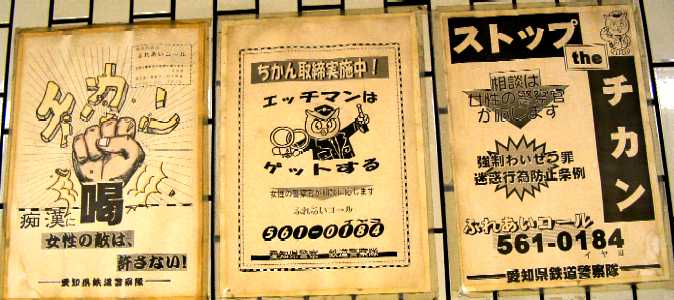 ふれあいコール
痴漢に
喝
女性の敵は、
許さない!
愛知県鉄道警察隊
ちかん取締実施中!
エッチマンは
ゲットする
女性の警察官が相談に応じます
ふれあいコール
561-0184
愛知県警察 鉄道警察隊
ストップ
the
チカン
相談は
女性の警察官
が応じます
強制わいせつ罪
迷惑行為防止条例
ふれあいコール
561-0184
愛知県鉄道警察隊